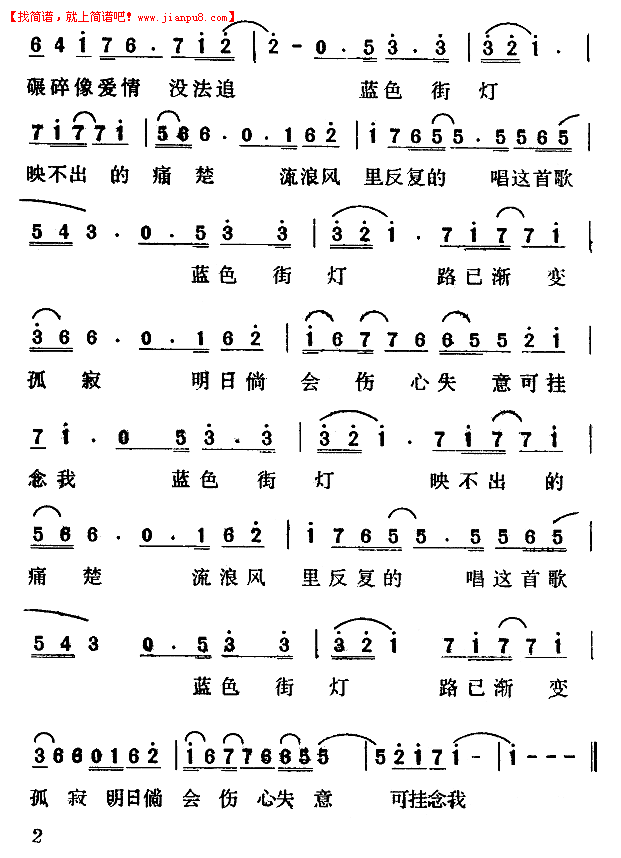 【找简谱，就上简谱吧！www.jianpu8.com】
6 4 i 7 6 · 7 i 2 | 2 - 0 · 5 3 · 3 | 3 2 i · |
碾碎像爱情 没法追 蓝色 街 灯
7 i 7 7 i | 5 6 6 · 0 · 1 6 2 | i 7 6 5 5 · 5 5 6 5 |
映不出 的 痛 楚 流浪风 里反复的 唱这首歌
5 4 3 · 0 · 5 3 3 | 3 2 i · 7 i 7 7 i |
蓝色 街 灯 路已渐 变
3 6 6 · 0 · 1 6 2 | i 6 7 7 6 6 5 5 2 i |
孤 寂 明日倘 会 伤 心失 意可挂
7 i · 0 5 3 · 3 | 3 2 i · 7 i 7 7 i |
念我 蓝色 街 灯 映不出 的
5 6 6 · 0 · 1 6 2 | i 7 6 5 5 · 5 5 6 5 |
痛 楚 流浪风 里反复的 唱这首歌
5 4 3 0 · 5 3 · 3 | 3 2 i 7 i 7 7 i |
蓝色 街 灯 路已渐 变
3 6 6 0 1 6 2 | i 6 7 7 6 6 5 5 | 5 2 i 7 i - | i - - - ‖
孤 寂 明日倘 会 伤 心失 意 可挂念我
2